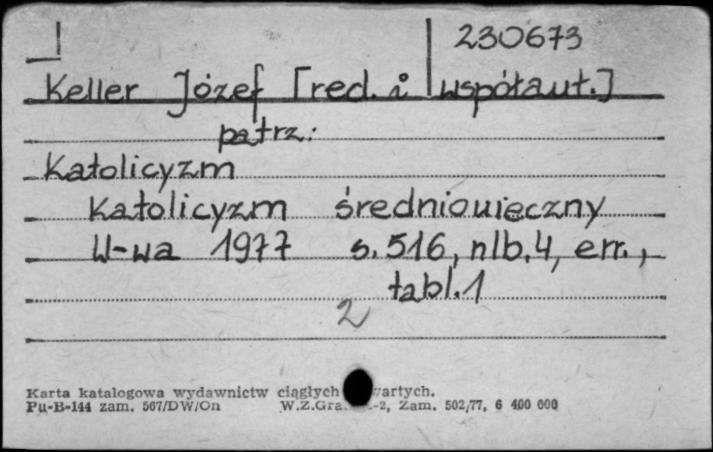 230673
Keller Józef [red. i współaut.]
patrz:
Katolicyzm
Katolicyzm średniowieczny
W-wa 1977 s. 516, nlb. 4, err.,
tabl. 1
2
Karta katalogowa wydawnictw ciągłych
Pu-B-144 zam. 567/DW/On W.Z.Gra. -2, Zam. 502/77, 6 400 000